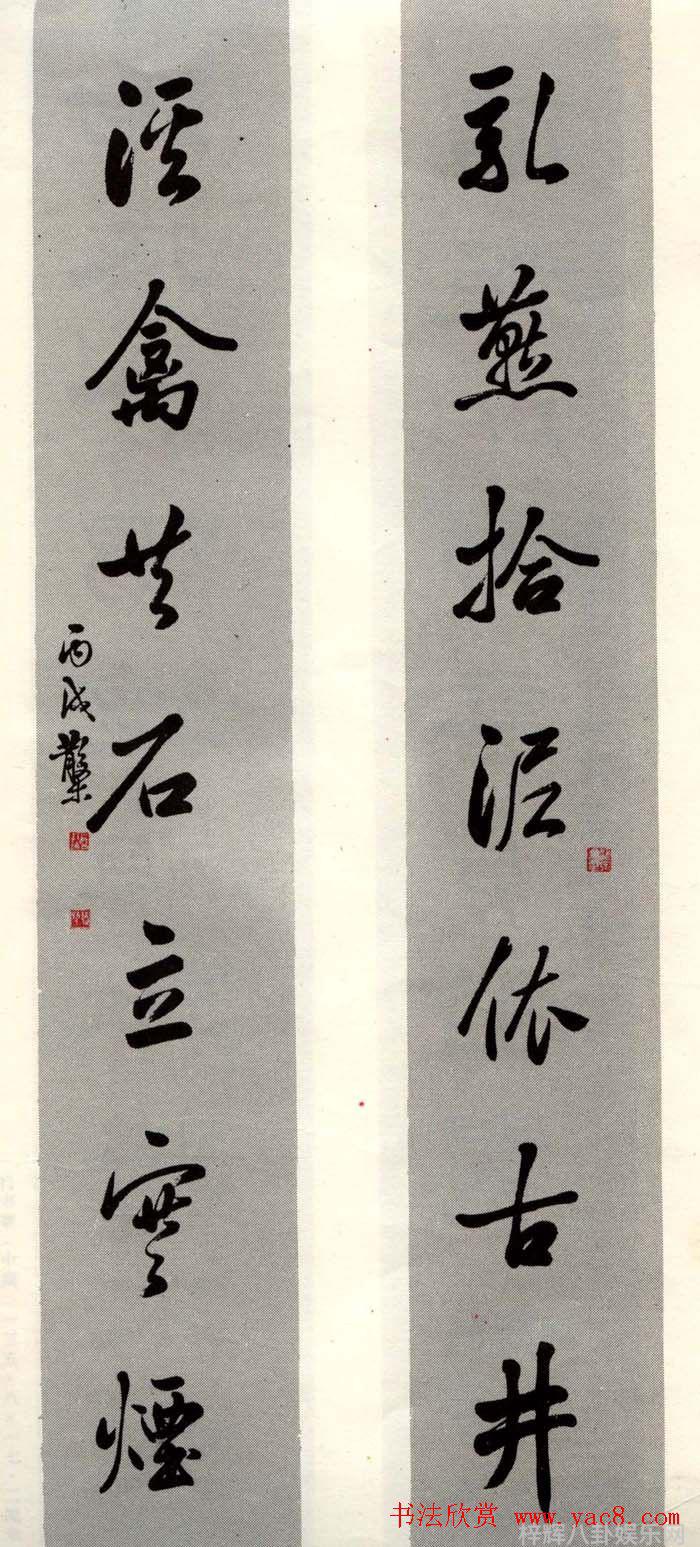 乳燕拾泥依古井
溪禽共石立寒煙
丙戌
书法欣赏 www.yac8.com
梓辉八卦娱乐网